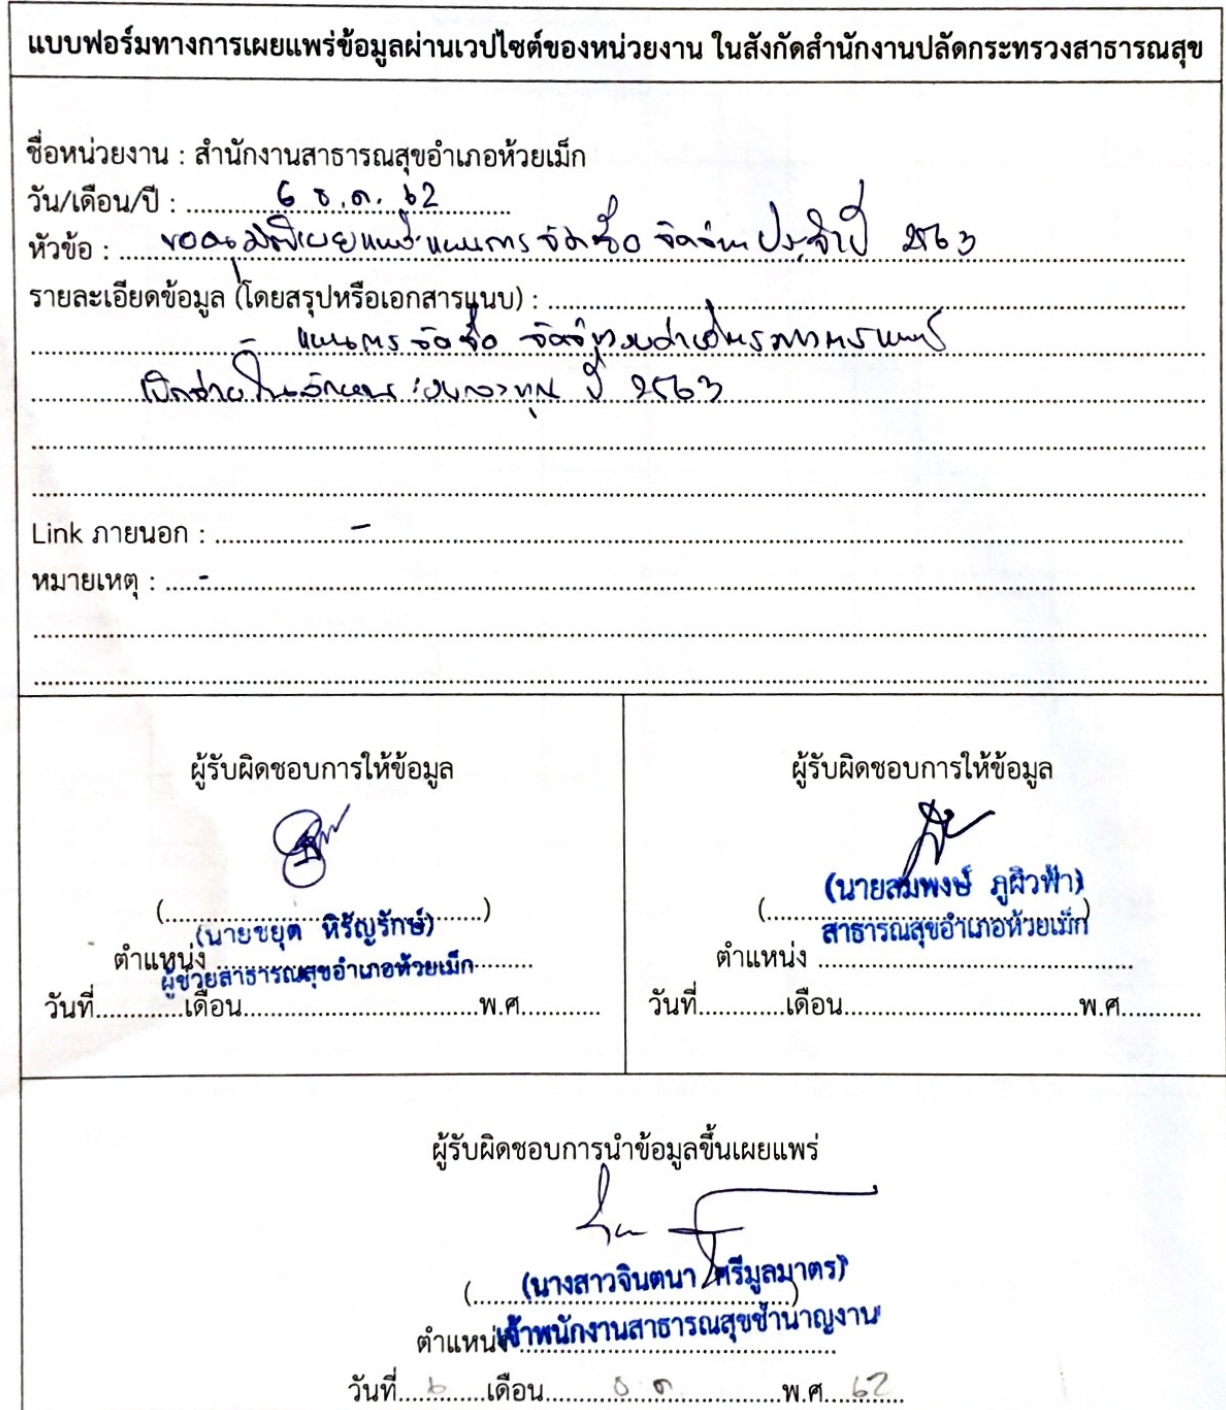 แบบฟอร์มทางการเผยแพร่ข้อมูลผ่านเวปไซต์ของหน่วยงาน ในสังกัดสำนักงานปลัดกระทรวงสาธารณสุข
ชื่อหน่วยงาน : สำนักงานสาธารณสุขอำเภอห้วยเม็ก
วัน/เดือน/ปี : 6 ธ.ค. 62
หัวข้อ : ขออนุมัติเผยแพร่แผนการจัดซื้อ จัดจ้าง ประจำปี 2563
รายละเอียดข้อมูล (โดยสรุปหรือเอกสารแนบ) :
แผนการจัดซื้อ จัดจ้าง
เบิกจ่ายในลักษณะงบลงทุน ปี 2563
Link ภายนอก : -
หมายเหตุ : -
ผู้รับผิดชอบการให้ข้อมูล
(นายชยุต หิรัญรักษ์)
ตำแหน่ง ผู้ช่วยสาธารณสุขอำเภอห้วยเม็ก
วันที่.............เดือน...................................พ.ศ............
ผู้รับผิดชอบการให้ข้อมูล
(นายสมพงษ์ ภูผิวฟ้า)
สาธารณสุขอำเภอห้วยเม็ก
ตำแหน่ง ...............................................
วันที่.............เดือน...................................พ.ศ............
ผู้รับผิดชอบการนำข้อมูลขึ้นเผยแพร่
(นางสาวจินตนา ศรีมูลมาตร)
ตำแหน่ง เจ้าพนักงานสาธารณสุขชำนาญงาน
วันที่ 6 เดือน ธ.ค. พ.ศ. 62